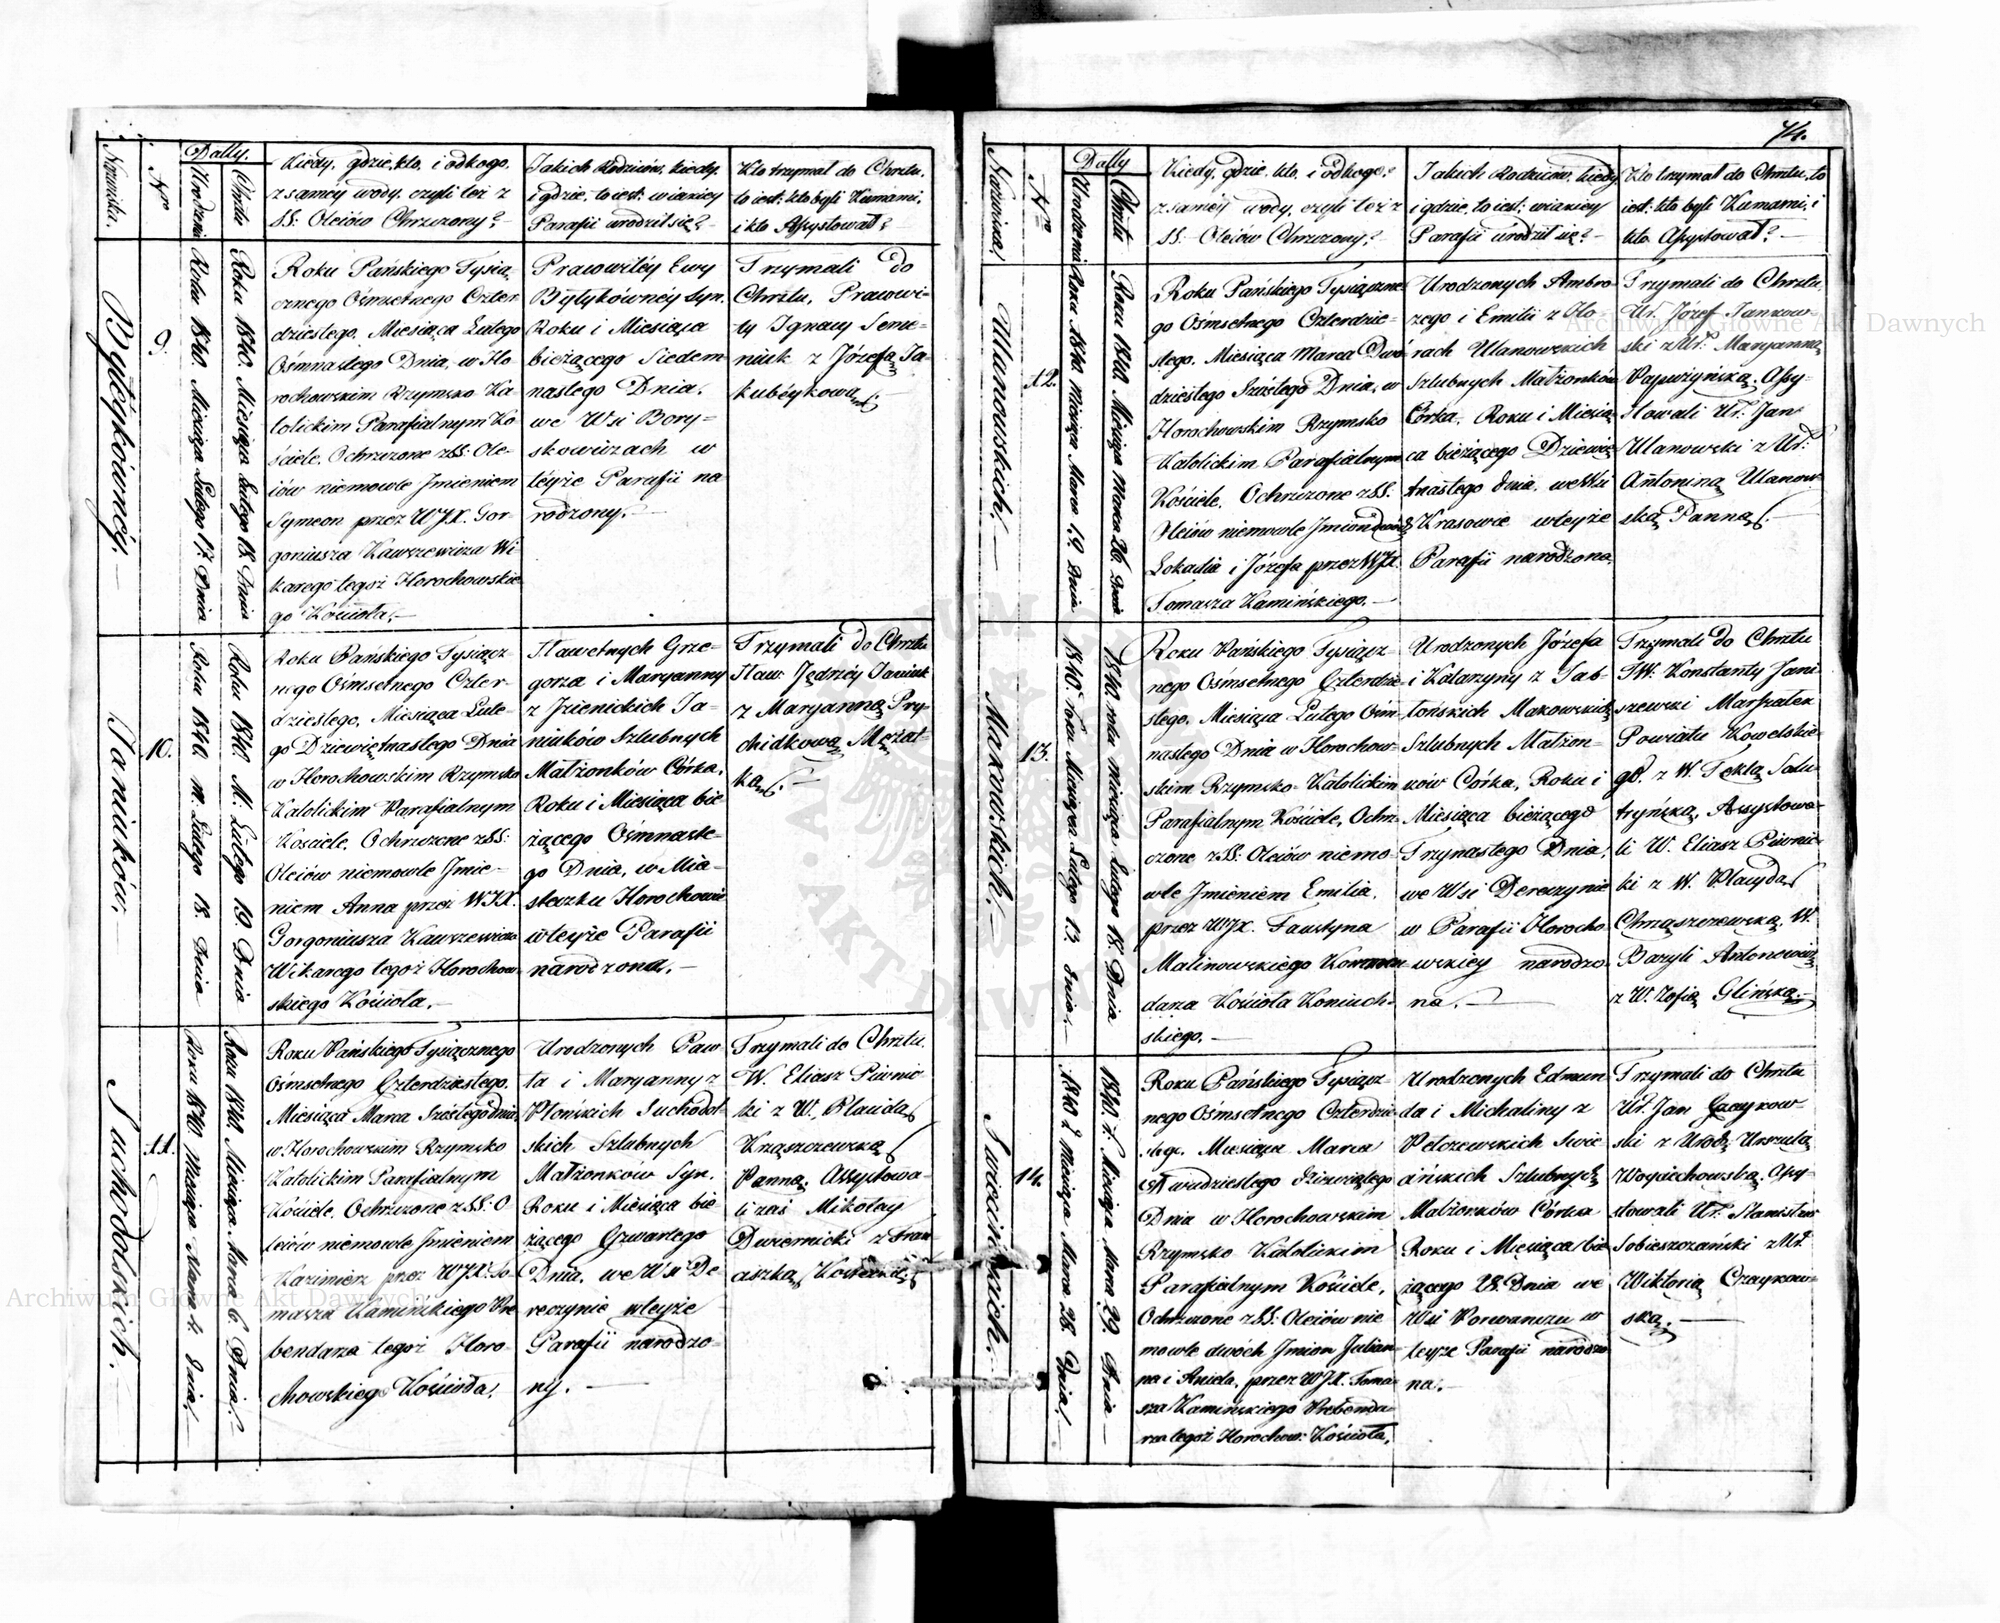 Nazwiska.
Nro
Datty.
Urodzenia
Chrztu
Kiedy, gdzie, kto, i od kogo,
z samey wody, czyli też z
SS: Oleiów Chrzczony?
Jakich Rodziców, kiedy,
i gdzie, to iest: w iakiey
Parafii urodził się?
Kto trzymał do Chrztu,
to iest: kto byli Kumami,
i kto Assystował?
Bytykówney.
9.
Roku 1840. Miesiąca Lutego 17. Dnia
Roku 1840. Miesiąca Lutego 18. Dnia
Roku Pańskiego Tysią-
cznego Ośmsetnego Czter-
dziestego, Miesiąca Lutego
Ośmnastego Dnia, w Ho-
rochowskim Rzymsko Ka-
tolickim Parafialnym Ko-
ściele, Ochrzczone z SS: Ole-
iów niemowle Jmieniem
Symeon przez WJX. Gor-
goniusza Kawszewicza Wi-
karego tegoż Horochowskie-
go Kościoła.
Pracowitéy Ewy
Bytykównéy syn,
Roku i Miesiąca
bieżącego Siedem-
nastego Dnia,
we Wsi Bory-
skowiczach w
téyże Parafii na-
rodzony.
Trzymali do
Chrztu, Pracowi-
ty Ignacy Seme-
niuk z Józefą Ja-
kubéykową.
Janiuków.
10.
Roku 1840 m. Lutego 18. Dnia
Roku 1840. M: Lutego 19. Dnia
Roku Pańskiego Tysiącz-
nego Ośmsetnego Czter-
dziestego, Miesiąca Lute-
go Dziewiętnastego Dnia
w Horochowskim Rzymsko
Katolickim Parafialnym
Kościele, Ochrzczone z SS:
Oleiów niemowle Jmie-
niem Anna przez WJX.
Gorgoniusza Kawszewicza
Wikarego tegoż Horochow-
skiego Kościoła.
Sławetnych Grze-
gorza i Maryanny
z Jzienickich Ja-
niuków Szlubnych
Małżonków Córka,
Roku i Miesiąca bie-
żącego Ośmnaste-
go Dnia, w Mia-
steczku Horochowie
w teyże Parafii
narodzona.
Trzymali do Chrztu
Sław: Jędrzey Janiuk
z Maryanną Pry-
chidkową Mężat-
ką.
Suchodolskich.
11.
Roku 1840. Miesiąca Marca 4. dnia
Roku 1840. Miesiąca Marca 6 Dnia.
Roku Pańskiego Tysiącznego
Ośmsetnego Czterdziestego,
Miesiąca Marca Szóstego dnia,
w Horochowskim Rzymsko
Katolickim Parafialnym
Kościele, Ochrzczone z SS: O-
leiów niemowle Jmieniem
Kazimierz przez WJX. To-
masza Kamińskiego Pre-
bendarza tegoż Horo-
chowskiego Kościoła.
Urodzonych Paw-
ła i Maryanny z
Płońskich Suchodol-
skich Szlubnych
Małżonków Syn,
Roku i Miesiąca bie-
żącego Czwartego
Dnia, we Wsi De-
reczynie w teyże
Parafii narodzo-
ny.
Trzymali do Chrztu
W. Eliasz Piwnic-
ki z W. Placidą
Krząszczewską
Panną, Assystowa-
li zaś Mikołay
Dwiernicki z Fran-
ciszką
74.
Nazwiska.
Nro
Datty
Urodzenia
Chrztu
Kiedy, gdzie, kto, i od kogo,
z samey wody, czyli też z
SS: Oleiów Chrzczony?
Jakich Rodziców, kiedy
i gdzie, to iest: w iakiey
Parafii urodził się?
Kto trzymał do Chrztu, to
iest: kto byli Kumami, i
kto Assystował?
Ulanowskich.
12.
Roku 1840. Miesiąca Marca 19. Dnia
Roku 1840. Miesiąca Marca 26. Dnia
Roku Pańskiego Tysiączne-
go Ośmsetnego Czterdzie-
stego, Miesiąca Marca Dwó-
dziestego Szóstego Dnia, w
Horochowskim Rzymsko
Katolickim Parafialnym
Kościele, Ochrzczone z SS.
Oleiów niemowle Jmion dwóch
Lokadia i Józefa przez WJX.
Tomasza Kamińskiego.
Urodzonych Ambro-
żego i Emilii z Ho-
rach Ulanowskich
Szlubnych Małżonków
Córka, Roku i Miesią-
ca bieżącego Dziewię-
tnastego dnia, we Wsi
Krasowie w teyże
Parafii narodzona.
Trzymali do Chrztu,
Ur. Józef Jankow-
ski z Ur: Maryanną
Assy-
stowali Ur. Jan
Ulanowski z Ur.
Antoniną Ulanow-
ską Panną.
Makowskich.
13.
1840. roku Miesiąca Lutego 13. dnia.
1840. roku miesiąca Lutego 18. Dnia
Roku Pańskiego Tysiącz-
nego Ośmsetnego Czterdzie-
stego, Miesiąca Lutego Ośm-
nastego Dnia w Horochow-
skim Rzymsko-Katolickim
Parafialnym Kościele, Ochrz-
czone z SS: Oleiów niemo-
wle Jmieniem Emilia,
przez WJX. Faustyna
Malinowskiego Kommen-
darza Kościoła Koniuch-
skiego.
Urodzonych Józefa
i Katarzyny z Jab-
łońskich Makowskich
Szlubnych Małżon-
ków Córka, Roku i
Miesiąca bieżącego
Trzynastego Dnia,
we Wsi Dereczynie
w Parafii Horocho-
wskiey narodzo-
na.
Trzymali do Chrztu
JW. Konstanty Jani-
szewski Marszałek
Powiatu Kowelskie-
go, z W. Teklą Solu-
tryńską, Assystowa-
li W. Eliasz Piwnic-
ki z W. Placydą
Chrząszczewską, W.
Bazyli Antonowicz
z W. Zofią Glińską.
Swiecińskich.
14.
1840 r. Miesiąca Marca 28. Dnia.
1840. r. Miesiąca Marca 29. Dnia
Roku Pańskiego Tysiącz-
nego Ośmsetnego Czterdzie-
stego, Miesiąca Marca
Dwudziestego dziewiątego
Dnia w Horochowskim
Rzymsko Katolickim
Parafialnym Kościele,
Ochrzczone z SS: Oleiów nie-
mowle dwóch Jmion Julian-
na i Aniela, przez WJX. Toma-
sza Kamińskiego Prebenda-
rza tegoż Horochow: Kościoła.
Urodzonych Edmun-
da i Michaliny z
Pełczewskich Swie-
cińskich Szlubnych
Małżonków Córka
Roku i Miesiąca bie-
żącego 28. Dnia we
Wsi Porwanczu w
teyże Parafii narodzo-
na.
Trzymali do Chrztu
Ur. Jan Czaykow-
ski z Urodz. Urszulą
Woyciechowską, Assy-
stowali Ur. Stanisław
Sobieszczański z Ur.
Wiktorią Czaykow-
ską.
Archiwum Główne Akt Dawnych
Archiwum Główne Akt Dawnych